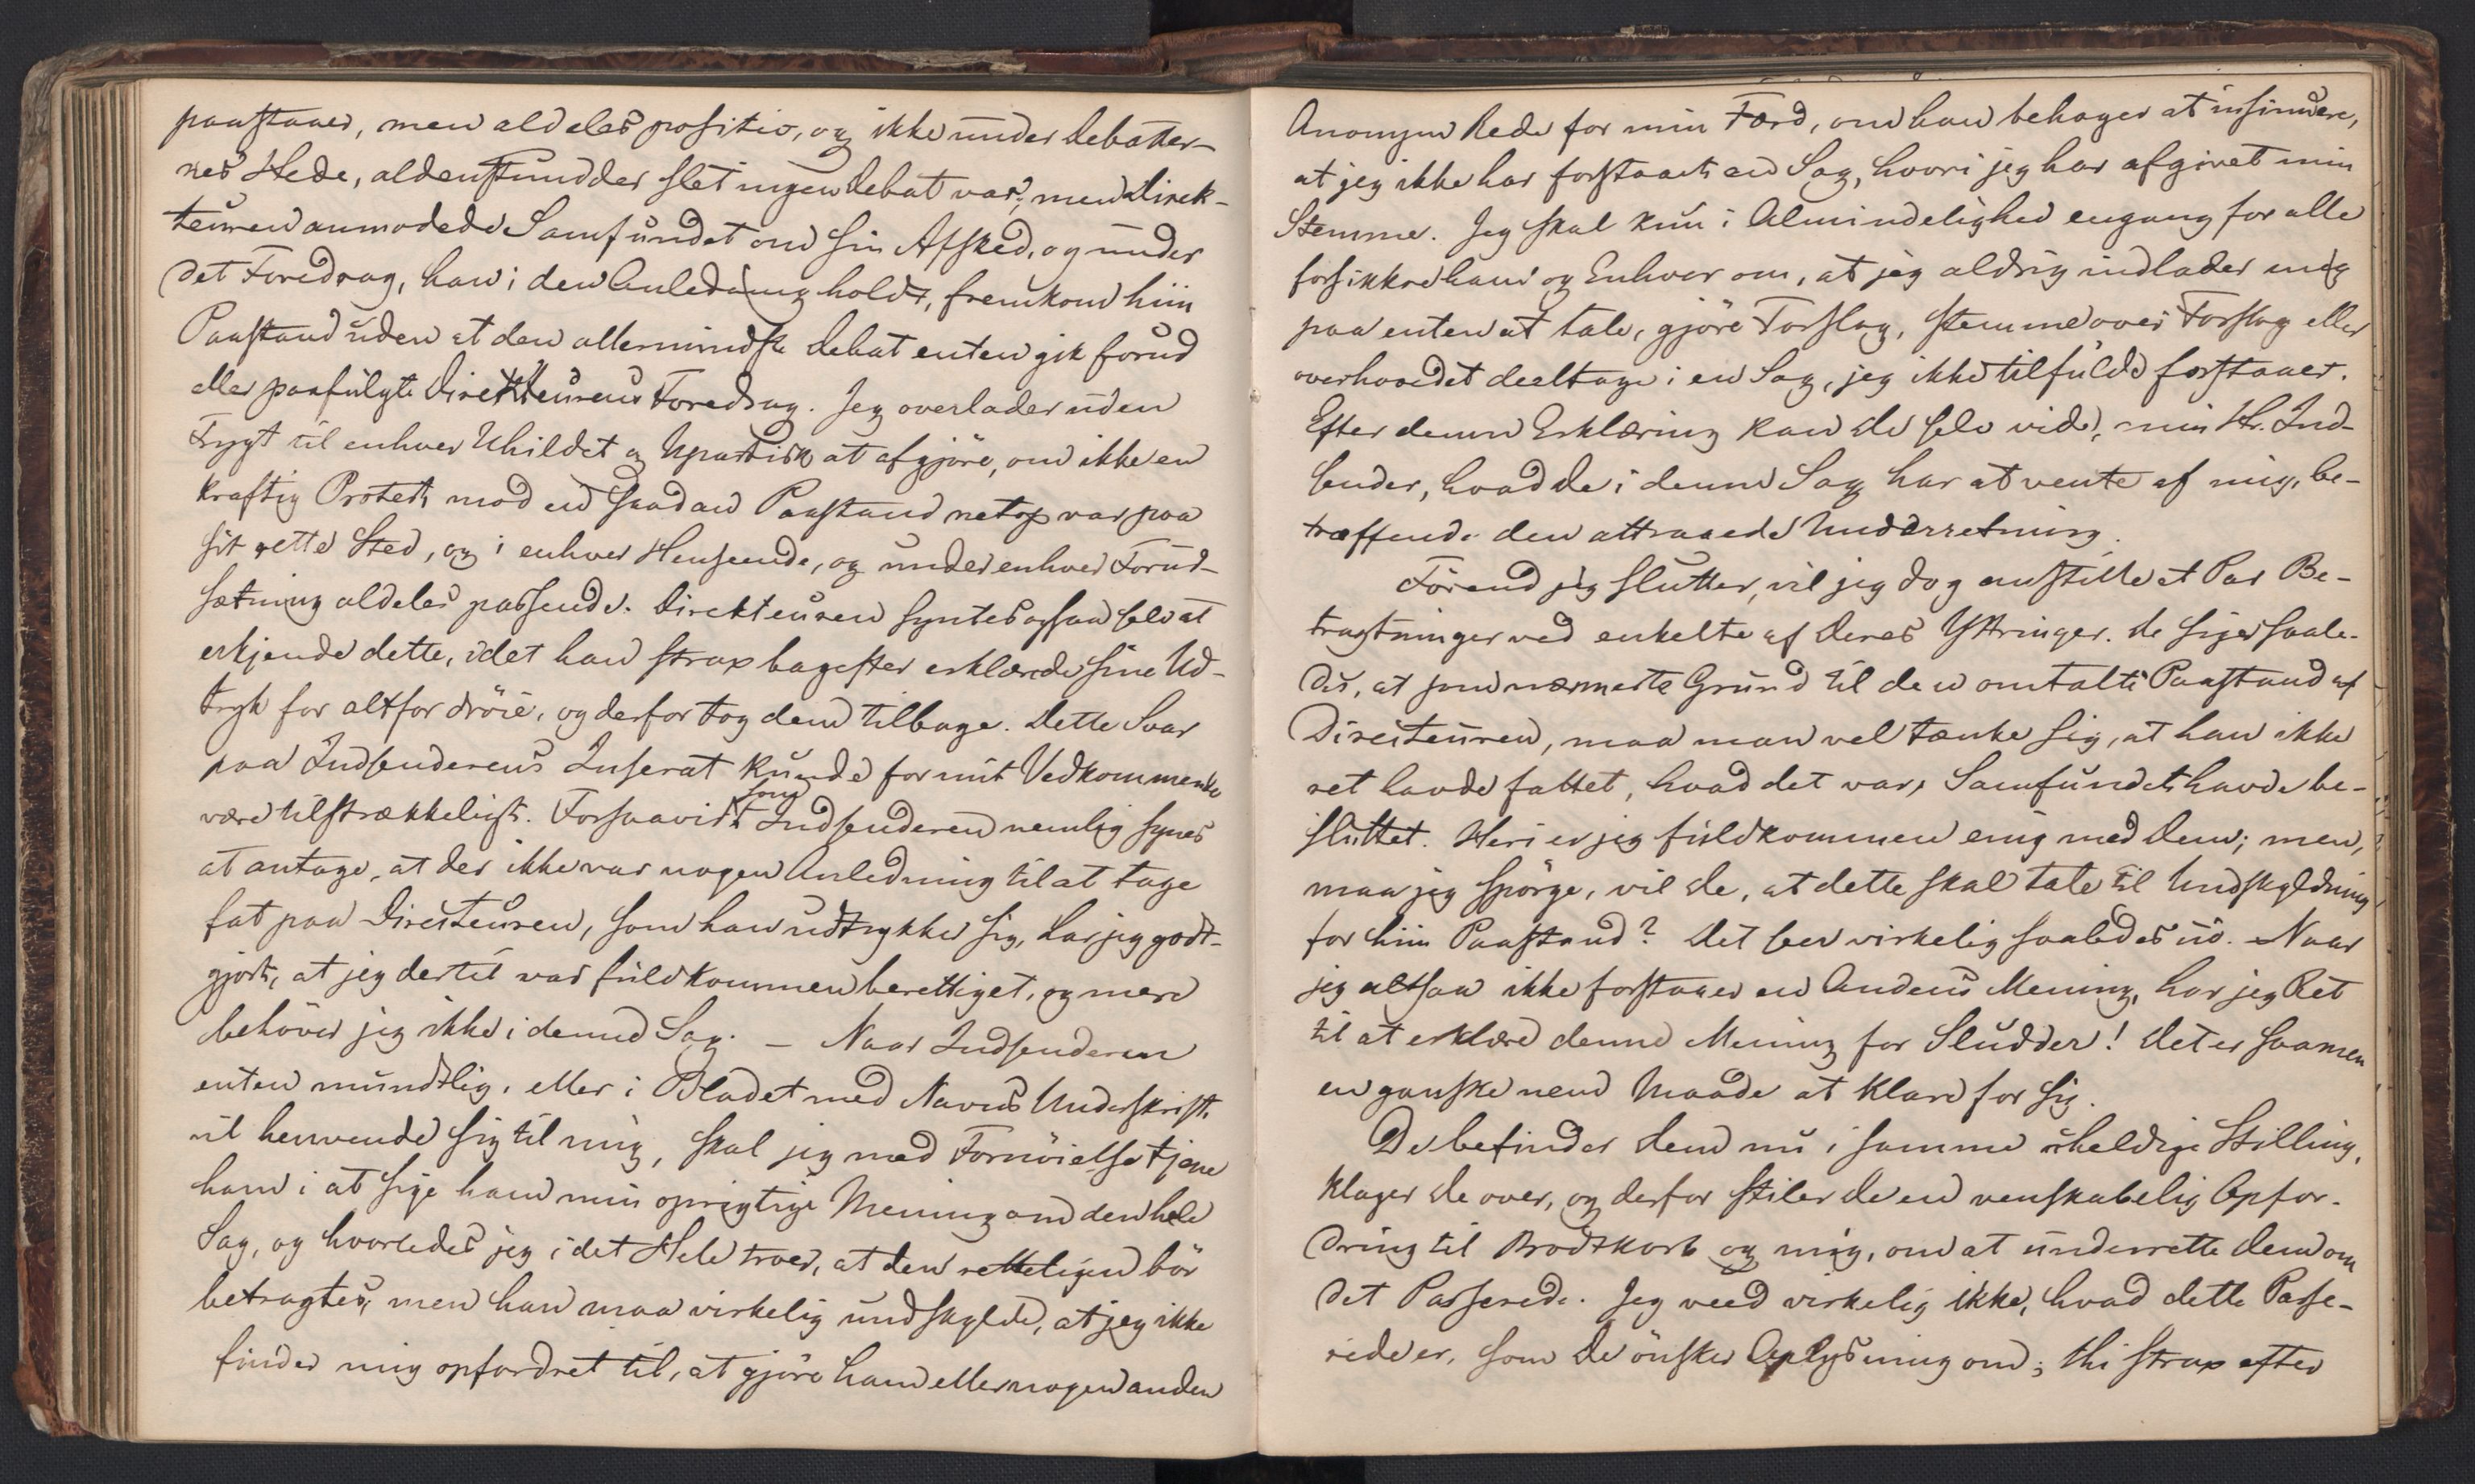 paastaaer, men aldeles positiv, og ikke under Debatter-
nes Hede, aldenstund der slet ingen Debat var; men Direk-
teuren anmodede Samfundet om sin Afsked, og under
det Foredrag, han i den Anledning holdt, fremkom hiin
Paastand uden at den allermindste Debat enten gik forud
eller paafulgte Direkteurens Foredrag. Jeg overlader uden
Frygt til enhver Uhildet og Upartisk at afgjöre, om ikke en
kraftig Protest mod en saadan Paastand netop var paa
sit rette Sted, og i enhver Henseende, og under enhver Forud-
sætning aldeles passende. Direkteuren syntes ogsaa selv at
erkjende dette, idet han strax bagefter erklærede sine Ud-
tryk for altfor dröie, og derfor tog dem tilbage. Dette Svar
paa Indsenderens Inserat kunde for mit Vedkommende
være tilstrækkeligt. Forsaavidt som Indsenderen nemlig synes
at antage, at der ikke var nogen Anledning til at tage
fat paa Directeuren, som han udtrykker sig, har jeg godt-
gjort, at jeg dertil var fuldkommen berettiget, og mere
behöver jeg ikke i denne Sag. – Naar Indsenderen
enten mundtlig, eller i Bladet med Navns Underskrift
vil henvende sig til mig, skal jeg med Fornöielse tjene
ham i at sige ham min oprigtige Mening om den hele
Sag, og hvorledes jeg i det Hele troer, at den retteligen bör
betragtes, men han maa virkelig undskylde, at jeg ikke
finder mig opfordret til, at gjöre ham eller nogen anden
Anonym Rede for min Færd, om han behager at insinuere,
at jeg ikke har forstaaet en Sag, hvori jeg har afgivet min
Stemme. Jeg skal kun i Almindelighed engang for alle
forsikkre ham og Enhver om, at jeg aldrig indlader mig
paa enten at tale, gjöre Forslag, stemme over Forslag eller
overhovedet deeltage i en Sag, jeg ikke tilfulde forstaaer.
Efter denne Erklæring kan De selv vide, min Hr. Ind-
sender, hvad De i denne Sag har at vente af mig, be-
træffende den attraaede Underretning.
Förend jeg slutter, vil jeg dog anstille et Par Be-
tragtninger ved enkelte af Deres Yttringer. De siger saale-
des, at som nærmeste Grund til den omtalte Paastand af
Directeuren, maa man vel tænke sig, at han ikke
ret havde fattet, hvad det var, Samfundet havde be-
sluttet. Heri er jeg fuldkommen enig med Dem; men,
maa jeg spörge, vil De, at dette skal tale til Undskyldning
for hiin Paastand? Det seer virkelig saaledes ud. Naar
jeg altsaa ikke forstaaer en Andens Mening, har jeg Ret
til at erklære denne Mening for Sludder! Det er saamen
en ganske nem Maade at klare for sig.
De befinder Dem nu i samme uheldige Stilling,
klager De over, og derfor stiler De en venskabelig Opfor-
dring til Brodtkorb og mig, om at underrette Dem om
det Passerede. Jeg veed virkelig ikke, hvad dette Passe-
rede er, som De önsker Oplysning om; thi strax efter